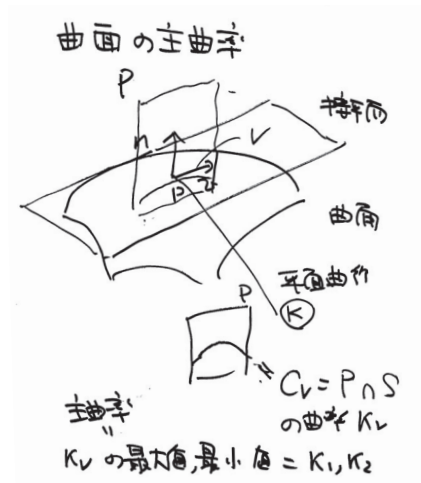 曲面の主曲率
P
接平面
n
V
p
曲面
平面曲線
K
P
Cv = P∩S
の曲率 Kv
主曲率
"
Kv の最大値,最小値 = K1, K2